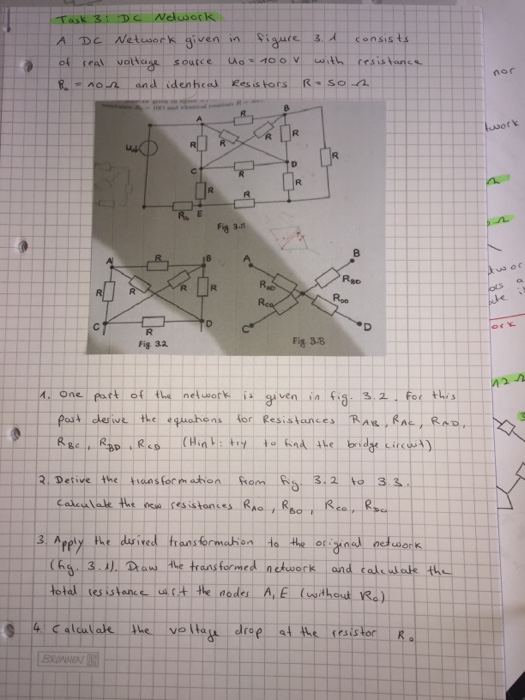 Task 3: DC Network
A DC Network given in figure 3.1 consists
of real voltage source U0 = 100 V with resistance
R0 = 10 Ω and identical Resistors R = 50 Ω
nor
work
A
R
B
R
R
R
R
R
U0
C
R
D
R
R
R0
E
R
Fig 3.1
A
R
B
R
R
R
R
C
R
D
Fig 3.2
A
B
RAO
RBO
RCO
RDO
C
D
Fig 3.3
1. One part of the network is given in fig. 3.2. For this
part derive the equations for Resistances RAB, RAC, RAD,
RBC, RBD, RCD (Hint: try to find the bridge circuit)
2. Derive the transformation from fig 3.2 to 3.3.
Calculate the new resistances RAO, RBO, RCO, RDO
3. Apply the derived transformation to the original network
(fig. 3.1). Draw the transformed network and calculate the
total resistance wrt the nodes A, E (without R0)
4. Calculate the voltage drop at the resistor R0
BRUNNEN